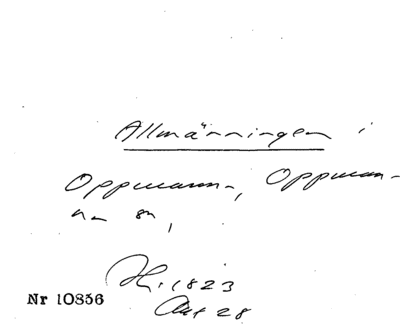 Allmänningen i
Oppmanna, Oppman-
na sn,
Hr. 1823
Akt 28
Nr 10856